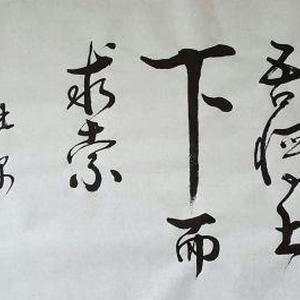 吾将上
下而
求索